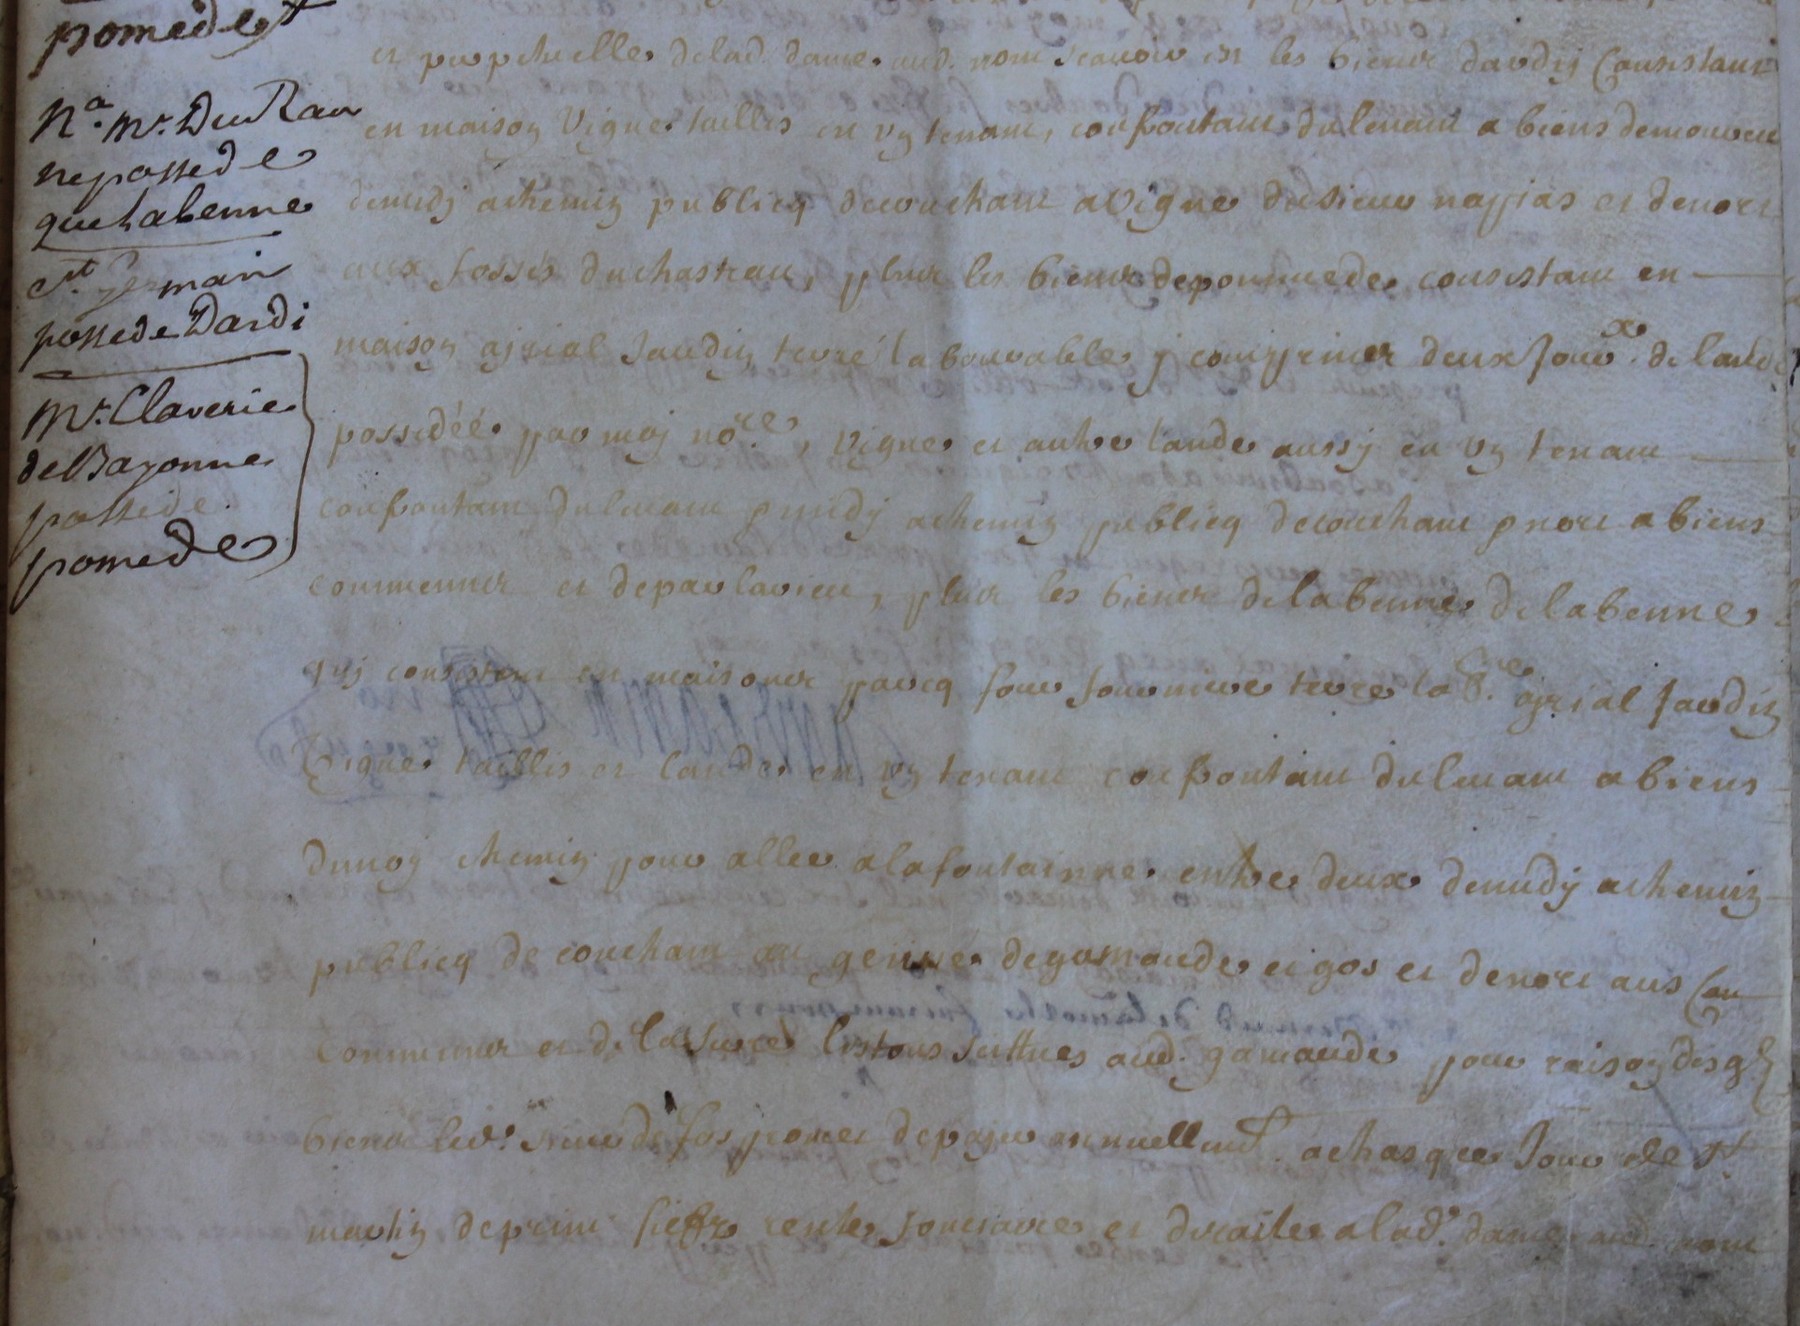 pomedes
Na. Mr. Du Rau
ne possede
que Labenne
St. germain
possede Dardi
Mr. Claverie
de Bayonne
possede
pomedes
et perpetuelle de lad. dame aud. nom scavoir est les biens dardij Consistant
en maison Vigne taillis en un tenant, confrontant du levant a biens
de midj a chemin publicq du couchant a Vigne du sieur et de nort
aux fossés du chasteau, plus les biens de pommedes consistant en
maison ajrial Jardin terre labourable y comprines deux Jourx. de lande
possedéé par moj nore, vigne et autre lande aussj en un tenant
confrontant du levant midj a chemin publicq du couchant nort a biens
communs et de par lavieu, plus les biens de labenne de labenne
quj consistant en maisons parcq four terre lab. ajrial Jardin
Vigne taillis et lande en un tenant confrontant du levant a biens
chemin pour aller a la fontainne entre deux de midj a chemin
publicq de couchant au de gamarde et gos et de nort aus
communs et de aud. gamarde pour raison desqls
biens led. sieur de fos promet de pajer annuellemt. a chasque Jour de St.
martin de prim fieffz rente fonciaire et directe a lad. dame aud. nom